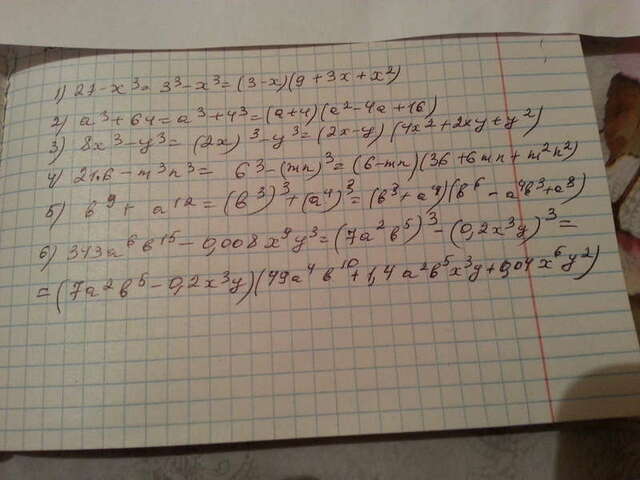 1) 27-x³=3³-x³=(3-x)(9+3x+x²)
2) a³+64=a³+4³=(a+4)(a²-4a+16)
3) 8x³-y³=(2x)³-y³=(2x-y)(4x²+2xy+y²)
4) 216-m³n³= 6³-(mn)³=(6-mn)(36+6mn+m²n²)
5) b⁹+a¹²=(b³)³+(a⁴)³=(b³+a⁴)(b⁶-a⁴b³+a⁸)
6) 343a⁶b¹⁵-0,008x⁹y³=(7a²b⁵)³-(0,2x³y)³=
=(7a²b⁵-0,2x³y)(49a⁴b¹⁰+1,4a²b⁵x³y+0,04x⁶y²)